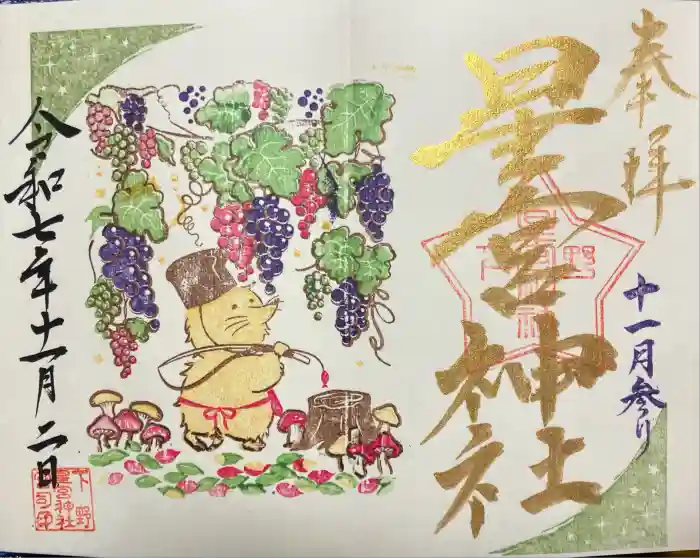 奉拝
星宮神社
十一月参り
下野
令和七年十一月二日
下野
星宮神社